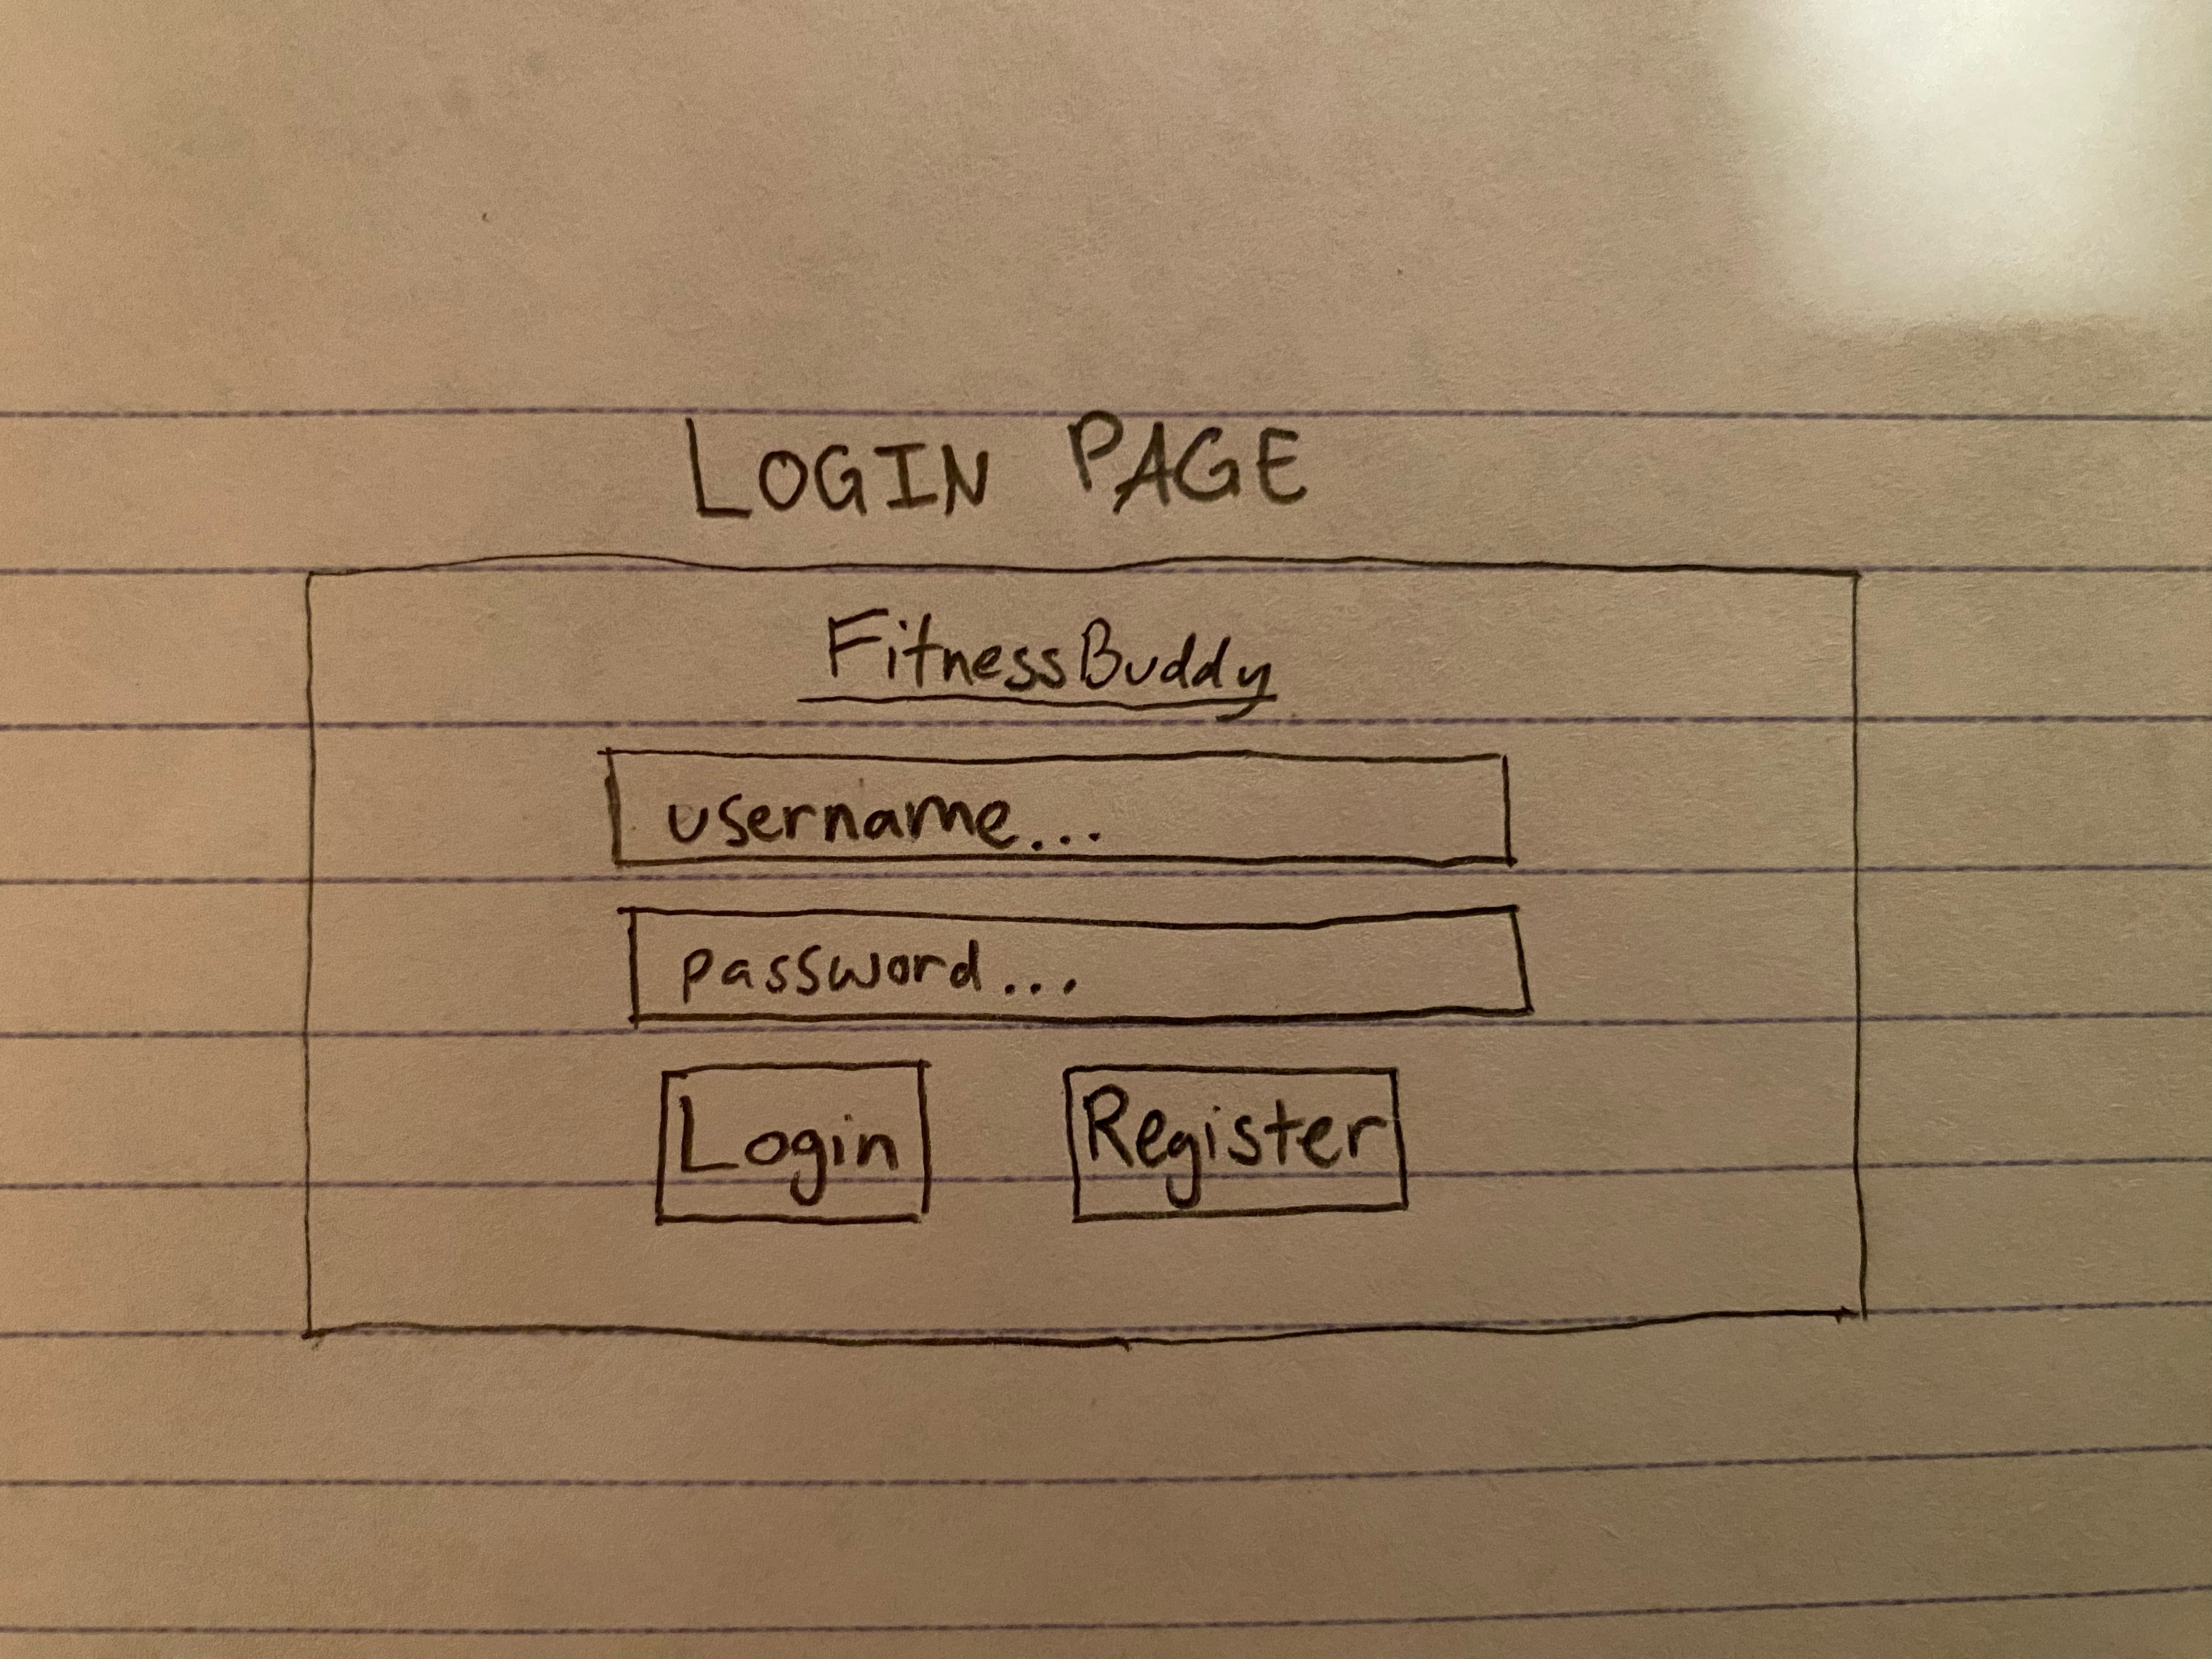 LOGIN PAGE
FitnessBuddy
username...
password...
Login Register